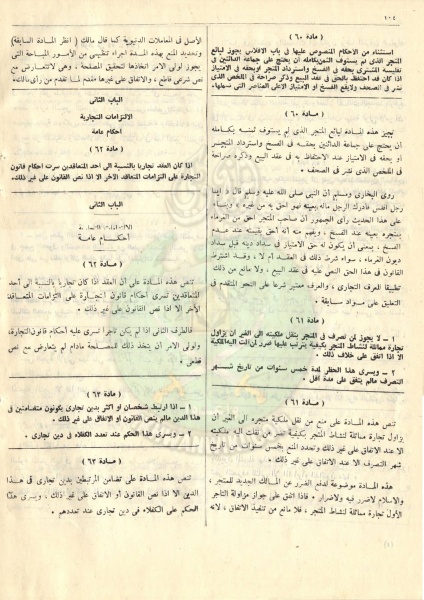 ١٠٤
( مادة ٦٠ )
استثناء من الاحكام المنصوص عليها في باب الافلاس يجوز لبائع
المتجر الذى لم يستوف الثمن بكامله أن يحتج على جماعة الدائنين في
تفليسة المشترى بحقه في الفسخ واسترداد المتجر أو بحقه في الامتياز
اذا كان قد احتفظ بالحق في عقد البيع وذكر صراحة في الملخص الذى
نشر في الصحف ولايقع الفسخ او الامتياز الا على العناصر التى سملها.
( مادة ٦٠ )
تجيز هذه المادة لبائع المتجر الذى لم يستوف ثمنه بكامله
أن يحتج على جماعة الدائنين بحقه في الفسخ واسترداد المتجر
أو بحقه في الامتياز عند الاحتفاظ به في عقد البيع وذكره صراحة
في الملخص الذى نشر في الصحف .
روى البخارى ومسلم أن النبى صلى الله عليه وسلم قال « ايما
رجل أفلس فأدرك الرجل ماله بعينه فهو أحق به من غيره » وبناء
على هذا الحديث رأى الجمهور أن صاحب المتجر أحق من الغرماء
بمتجره بعينه عند الفسخ ، ويفهم منه أنه أحق بقيمته عند عدم
الفسخ ، بمعنى أن يكون له حق الامتياز في سداد دينه قبل سداد
ديون الغرماء ، سواء شرط ذلك في العقد أم لا ، وقد اشترط
القانون في هذا الحق النص عليه في عقد البيع ، ولا مانع من ذلك
تطبيقا للعرف التجارى ، والعرف معتبر شرعا على النحو المتقدم في
التعليق على مواد سابقة .
( مادة ٦١ )
١ – لا يجوز لمن تصرف في المتجر بنقل ملكيته الى الغير أن يزاول
تجارة مماثلة لنشاط المتجر بكيفية يترتب عليها ضرر لمن الت اليه الملكية
الا اذا اتفق على خلاف ذلك .
٢ – ويسرى هذا الحظر لمدة خمس سنوات من تاريخ شهر
التصرف مالم يتفق على مدة أقل .
( مادة ٦١ )
تنص هذه المادة على منع من نقل ملكية متجره الى الغير أن
يزاول تجارة مماثلة لنشاط المتجر بكيفية
الا عند الاتفاق على غير ذلك وتحدد المنع بخمس سنوات من تاريخ
شهر التصرف الا عند الاتفاق على غير ذلك .
هذه المادة موضوعة لدفع الضرر عن المالك الجديد للمتجر ،
والاسلام لاضرر فيه ولاضرار . فاذا اتفق على جواز مزاولة التاجر
الأول تجارة مماثلة لنشاط المتجر ، فلا مانع من تنفيذ الاتفاق ، لأنه
الأصل في المعاملات الدنيوية كما قال مالك ( انظر المادة السابقة )
وتحديد المنع بهذه المدة اجراء تنظيمى من الأمور المباحة التى
يجوز لولى الأمر اتخاذها لتحقيق المصلحة ، وهى لاتتعارض مع
نص شرعى قاطع ، والاتفاق على غيرها مقدم لما تقدم من رأى مالك.
الباب الثانى
الالتزامات التجارية
احكام عامة
( مادة ٦٢ )
اذا كان العقد تجاريا بالنسبة الى احد المتعاقدين سرت احكام قانون
التجارة على التزامات المتعاقد الآخر الا اذا نص القانون على غير ذلك .
الباب الثانى
الالتزامات التجارية
أحكام عامة
( مادة ٦٢ )
تنص هذه المادة على أن العقد اذا كان تجاريا بالنسبة الى أحد
المتعاقدين تسرى أحكام قانون التجارة على التزامات المتعاقد
الآخر الا اذا نص القانون على غير ذلك .
فالطرف الثانى اذا لم يكن تاجرا تسرى عليه أحكام قانون التجارة،
ولولى الأمر أن يتخذ ذلك للمصلحة مادام لم يتعارض مع نص
قطعى .
( مادة ٦٣ )
١ – اذا ارتبط شخصان أو أكثر بدين تجارى يكونون متضامنين في
هذا الدين مالم ينص القانون أو الاتفاق على غير ذلك .
٢ – ويسرى هذا الحكم عند تعدد الكفلاء في دين تجارى .
( مادة ٦٣ )
تنص هذه المادة على تضامن المرتبطين بدين تجارى في هذا
الدين الا اذا نص القانون أو الاتفاق على غير ذلك ، ويسرى هذا
الحكم على الكفلاء في دين تجارى عند تعددهم .